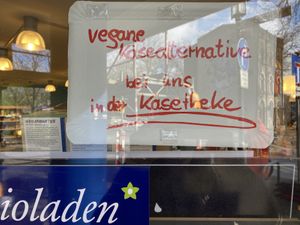 vegane
Käsealternative
bei uns
in der Käsetheke
ioladen